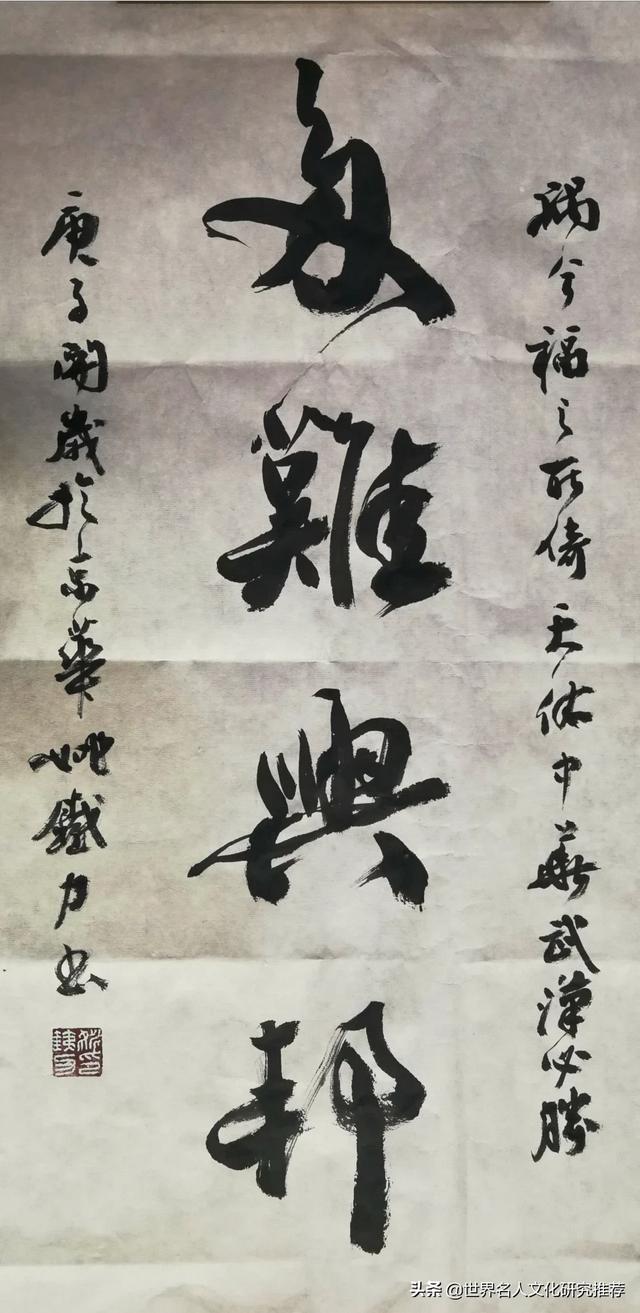 祸兮福之所倚天佑中华武漢必勝
多難興邦
庚子開歲於京華姚鐵力书
头条 @世界名人文化研究推荐